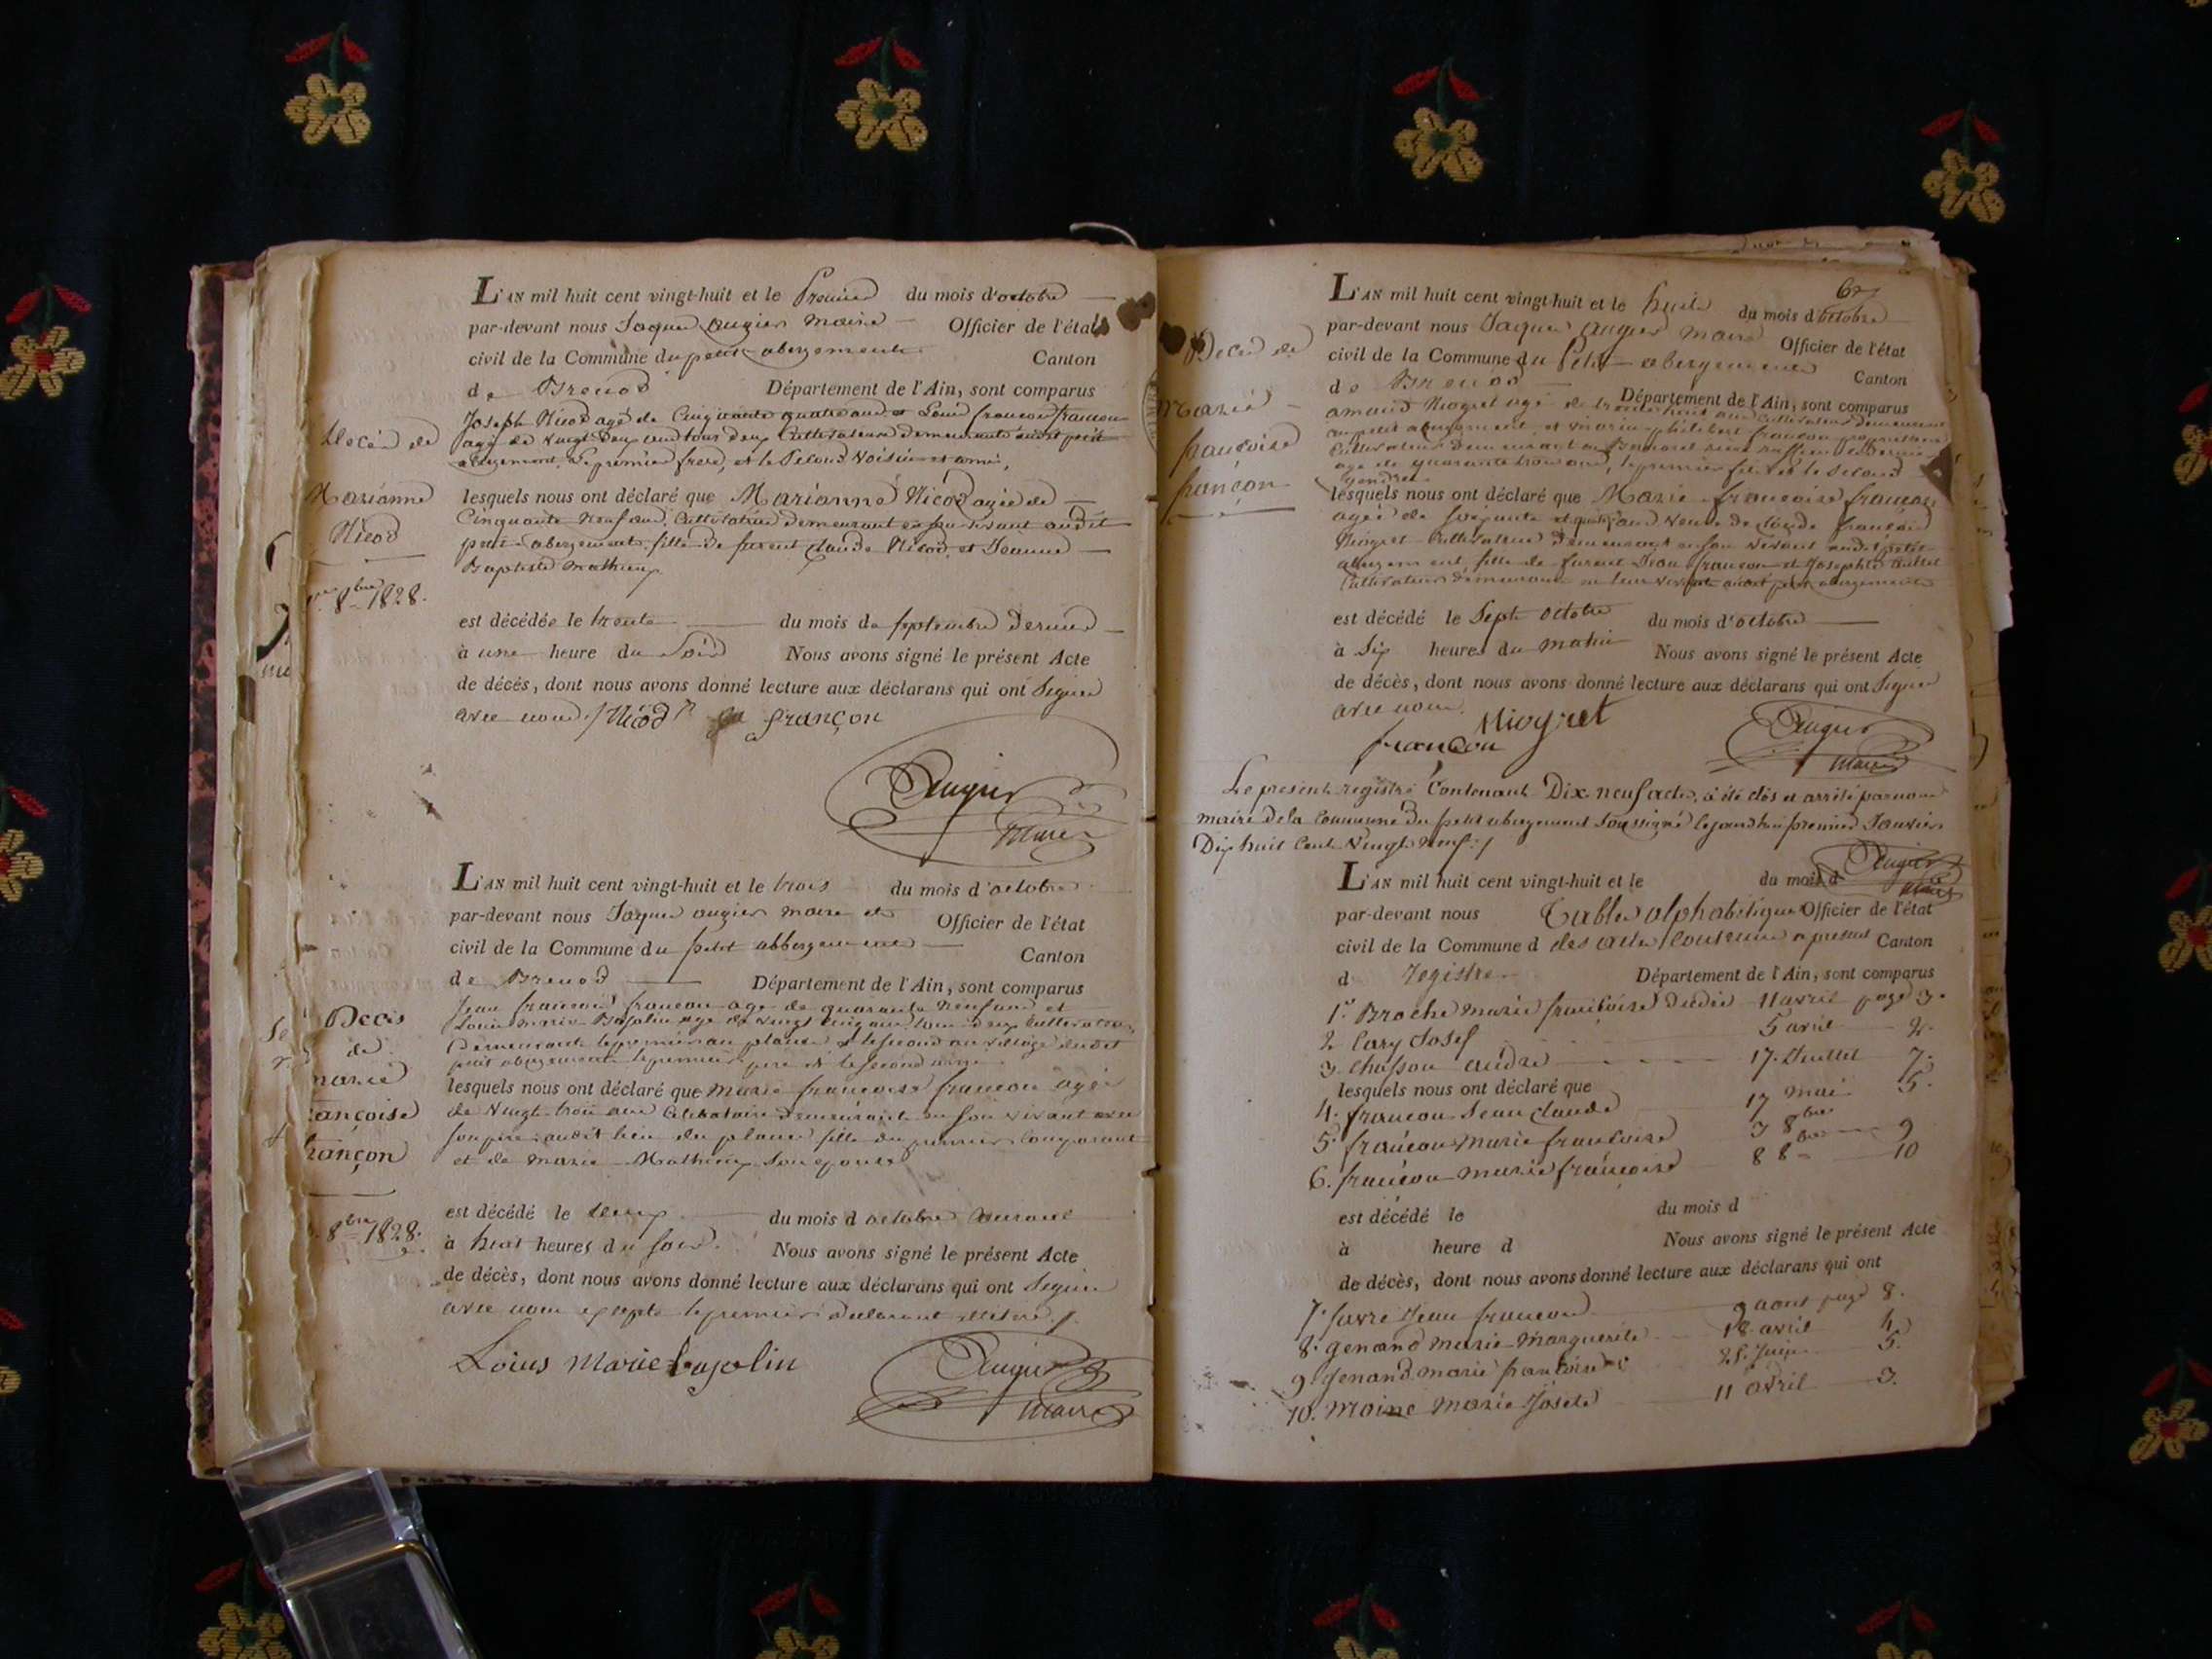 L'AN mil huit cent vingt-huit et le Premier du mois d'octobre
par-devant nous Jaques augier maire Officier de l'état
civil de la Commune du petit abergement Canton
de Brenod Département de l'Ain, sont comparus
Joseph Nicod agé de Cinquante quatre ans et Louis françois francon
agé de vingt Deux ans tous deux Cultivateurs Demeurants audit petit
abergement, Le premier frere, et le Second Voisin et ami,
Décéd de
Marianne
Nicod
8bre 1828.
lesquels nous ont déclaré que Marianne Nicod agée de
Cinquante Neuf ans, Cultivatrice Demeurant en son vivant audit
petit abergement fille de furent Claude Nicod et Jeanne
Baptiste Mathieu
est décédée le trente du mois de septembre dernier
à une heure du Soir Nous avons signé le présent Acte
de décés, dont nous avons donné lecture aux déclarans qui ont Signé
avec nous Nicod françon
Augier
Maire
L'AN mil huit cent vingt-huit et le trois du mois d'octobre
par-devant nous Jaques augier maire Officier de l'état
civil de la Commune du petit abbergement Canton
de Brenod Département de l'Ain, sont comparus
Jean francois francon age de quarante Neuf ans et
Louis Marie Bajolin age de vingt Cinq ans tous deux Cultivateurs
Demeurants le premier au planes et le second au village dudit
petit abergement le premier pere et le second
Deces
de
marie
ançoise
rançon
8bre 1828.
lesquels nous ont déclaré que marie francoise francon agée
de Vingt trois ans Celibataire Demeurante en son vivant avec
son pere audit lieu du planes fille du premier Comparant
et de Marie Mathieu son epouse
est décédé le deux du mois d octobre Courant
à huit heures du soir. Nous avons signé le présent Acte
de décès, dont nous avons donné lecture aux déclarans qui ont Signé
avec nous excepté le premier déclarant illétré
Loius Marie bajolin
Augier
Maire
L'AN mil huit cent vingt-huit et le huit du mois d'octobre
par-devant nous Jaques augier maire Officier de l'état
civil de la Commune du Petit abergement Canton
de Brenod Département de l'Ain, sont comparus
Décéd de
Marie
francoise
françon
au petit abergement et Marie philibert francon propriétaire
age de quarante trois ans, le premier fils et le Second
Gendre
lesquels nous ont déclaré que Marie francoise francon
agée de soixante et quatre ans Veuve de Claude françois
Niogret Cultivateur Demeurant en son vivant audit petit
abergement, fille de furent Jean francon et Josephte
Cultivateurs demeurants en leur vivant audit petit abergement
est décédé le Sept octobre du mois d'octobre
à Six heures du matin Nous avons signé le présent Acte
de décès, dont nous avons donné lecture aux déclarans qui ont Signé
avec nous.
Niogret
françon
Augier
Maire
Le présent registre Contenant Dix neuf actes, a été clos et arrêté par nous
maire de la Commune du petit abergement Soussigné le jourdhui premier Janvier
Dix huit Cent Vingt Neuf
Augier
Maire
L'AN mil huit cent vingt-huit et le du mois d
par-devant nous Table alphabétique Officier de l'état
civil de la Commune d des actes Contenus au présent Canton
d Registre Département de l'Ain, sont comparus
1. Broche Marie francoise Judie 11 avril page 3.
2. Cary Josef 5 avril 2.
3. Chasson andré 17. Juillet 7.
lesquels nous ont déclaré que
4. francon Jean Claude 17 mai 5.
5. francon Marie francoise 3 8bre 9
6. francon marie françoise 8 8bre 10
est décédé le du mois d
à heure d Nous avons signé le présent Acte
de décès, dont nous avons donné lecture aux déclarans qui ont
7. favre Jean francois 9 aout page 8.
8. genand Marie Marguerite 18 avril 4
9. genand marie francoise 25. Juin 5.
10. Moine Marie Josete 11 avril 3.